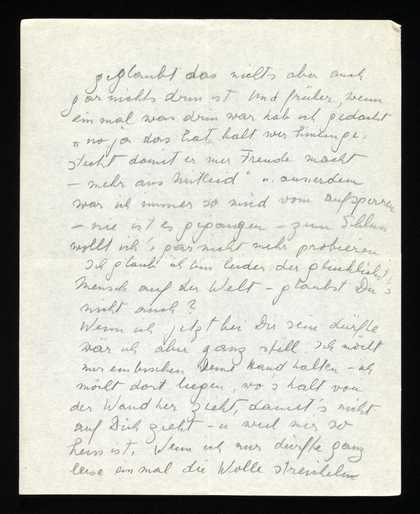 geglaubt das nichts aber auch
gar nichts drin ist. Und früher, wenn
einmal was drin war hab ich gedacht
"no ja das hat halt wer hineinge-
steckt damit er mir Freude macht
– mehr aus Mitleid" u. ausserdem
war ich immer so müd vom aufsperren
– nie ist es gegangen – zum Schluss
wollt ich's gar nicht mehr probieren
Ich glaub ich bin leider der glücklichste
Mensch auf der Welt – glaubst Du's
nicht auch?
Wenn ich jetzt bei Dir sein dürfte
wär ich aber ganz still. Ich möcht
nur ein bischen Deine Hand halten – ich
möcht dort liegen, wo's halt von
der Wand her zieht, damit's nicht
auf Dich zieht – u weil mir so
heiss ist. Wenn ich nur dürfte ganz
leise einmal die Wolle streicheln